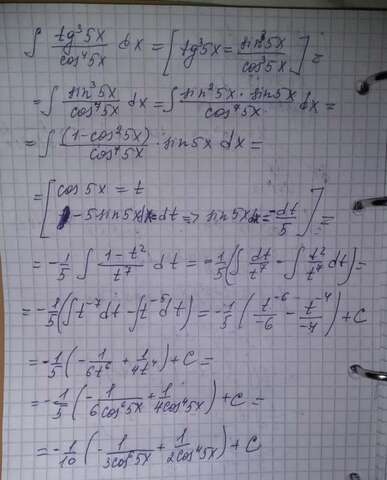 ∫ tg³5x / cos⁴5x dx = [tg³5x = sin³5x / cos³5x] =
= ∫ sin³5x / cos⁷5x dx = ∫ sin²5x · sin5x / cos⁷5x dx =
= ∫ (1-cos²5x) / cos⁷5x · sin5x dx =
= [cos5x = t
-5sin5xdx=dt => sin5xdx = -dt/5] =
= -1/5 ∫ 1-t² / t⁷ dt = -1/5(∫ dt/t⁷ - ∫ t²/t⁷ dt) =
= -1/5(∫t⁻⁷dt - ∫t⁻⁵dt) = -1/5 (t⁻⁶/-6 - t⁻⁴/-4) + C
= -1/5 (-1/6t⁶ + 1/4t⁴) + C =
= -1/5 (-1/6cos⁶5x + 1/4cos⁴5x) + C =
= -1/10 (-1/3cos⁶5x + 1/2cos⁴5x) + C